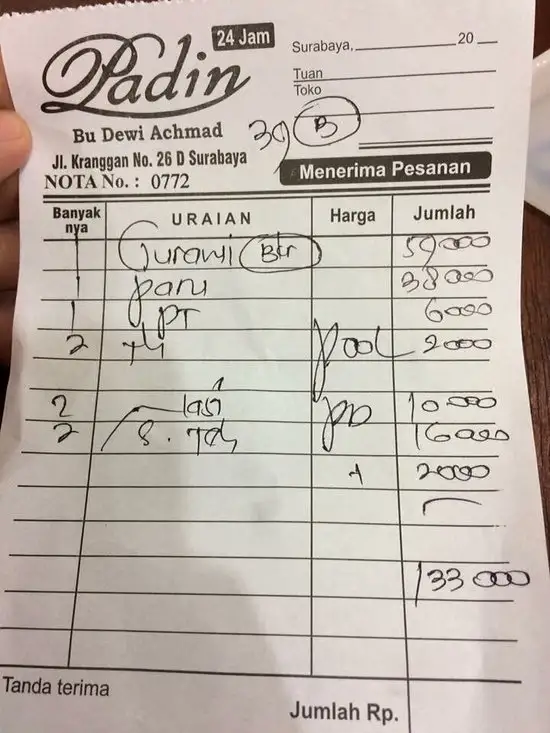 24 Jam
Padin
Bu Dewi Achmad
Jl. Kranggan No. 26 D Surabaya
NOTA No. : 0772
Surabaya, 20
Tuan
Toko
39 B
Menerima Pesanan
Banyak nya URAIAN Harga Jumlah
1 Gurami Btr 59000
1 paru 38000
1 PT 6000
2 2000
2 nasi 10000
2 16000
+ 2000
133 000
Tanda terima
Jumlah Rp.